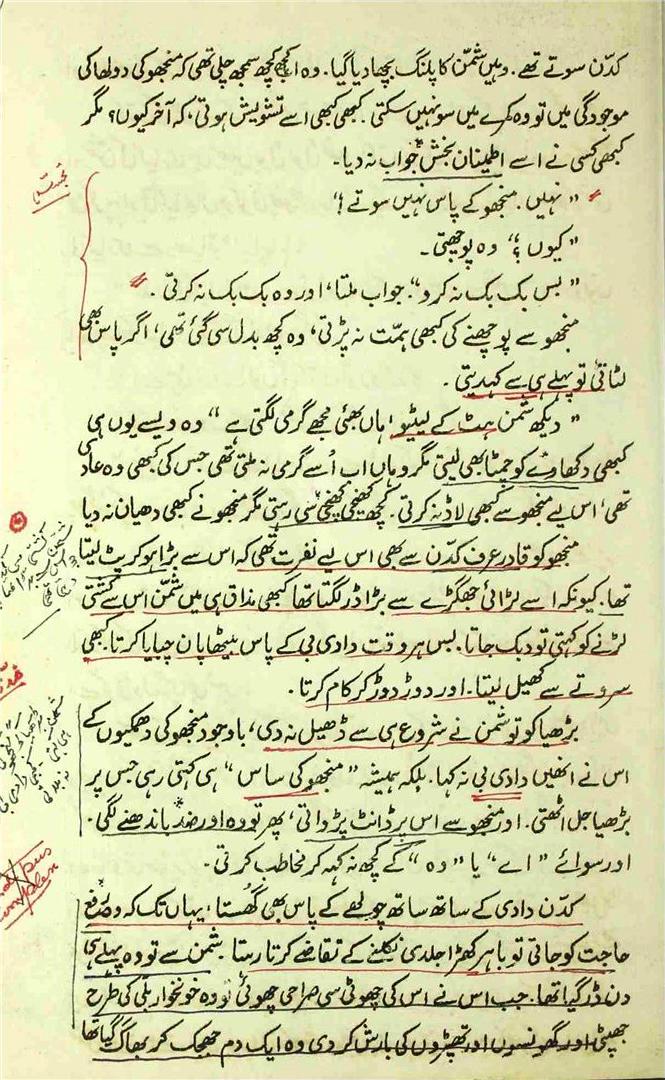 کدّن سوتے تھے۔ وہیں شمّن کا پلنگ بچھا دیا گیا۔ وہ اب کچھ کچھ سمجھ چلی تھی کہ منجھو کی دولھا کی
موجودگی میں تو وہ کمرے میں سو نہیں سکتی۔ کبھی کبھی اسے تشویش ہوتی، کہ آخر کیوں؟ مگر
کبھی کسی نے اسے اطمینان بخش جواب نہ دیا۔
"نہیں۔ منجھو کے پاس نہیں سوتے!"
"کیوں؟" وہ پوچھتی۔
"بس بک بک نہ کرو"۔ جواب ملتا، اور وہ بک بک نہ کرتی۔
منجھو سے پوچھنے کی کبھی ہمّت نہ پڑتی، وہ کچھ بدل سی گئی تھی، اگر پاس بھی
لٹاتی تو پہلے ہی سے کہدیتی۔
"دیکھ شمن ہٹ کے لیٹیو، ہاں بھئی مجھے گرمی لگتی ہے" وہ ویسے یوں ہی
کبھی دکھاوے کو چمٹا بھی لیتی مگر وہاں اب اُسے گرمی نہ ملتی تھی جس کی کبھی وہ عادی
تھی، اس لیے منجھو سے کبھی لاڈ نہ کرتی۔ کچھ کھنچی کھنچی سی رہتی مگر منجھو نے کبھی دھیان نہ دیا
منجھو کو قادر عرف کدّن سے بھی اس لیے نفرت تھی کہ اس سے بڑا ہو کر پٹ لیتا
تھا۔ کیونکہ اسے لڑائی جھگڑے سے بڑا ڈر لگتا تھا کبھی مذاق ہی میں شمّن اس سے کشتی
لڑنے کو کہتی تو دبک جاتا۔ بس ہر وقت دادی بی کے پاس بیٹھا پان چبایا کرتا۔ کبھی
سروتے سے کھیل لیتا۔ اور دوڑ دوڑ کر کام کرتا۔
بڑھیا کو تو شمن نے شروع ہی سے ڈھیل نہ دی، باوجود منجھو کی دھمکیوں کے
اس نے انھیں دادی بی نہ کہا۔ بلکہ ہمیشہ "منجھو کی ساس" ہی کہتی رہی جس پر
بڑھیا جل اٹھتی۔ اور منجھو سے اس پر ڈانٹ پڑواتی، پھر تو وہ اور ضد باندھنے لگی۔
اور سوائے "اے" یا "وہ" کے کچھ نہ کہہ کر مخاطب کرتی۔
کدّن دادی کے ساتھ ساتھ چولھے کے پاس بھی گھُستا، یہاں تک کہ وہ رفع
حاجت کو جاتی تو باہر کھڑا جلدی نکلنے کے تقاضے کرتا رہتا۔ شمن سے تو وہ پہلے ہی
دن ڈر گیا تھا۔ جب اس نے اس کی چھوٹی سی صراحی چھوئی تو وہ خونخوار بلی کی طرح
جھپٹی اور گھونسوں اور تھپڑوں کی بارش کر دی وہ ایک دم جھجک کر بھاگ گیا تھا